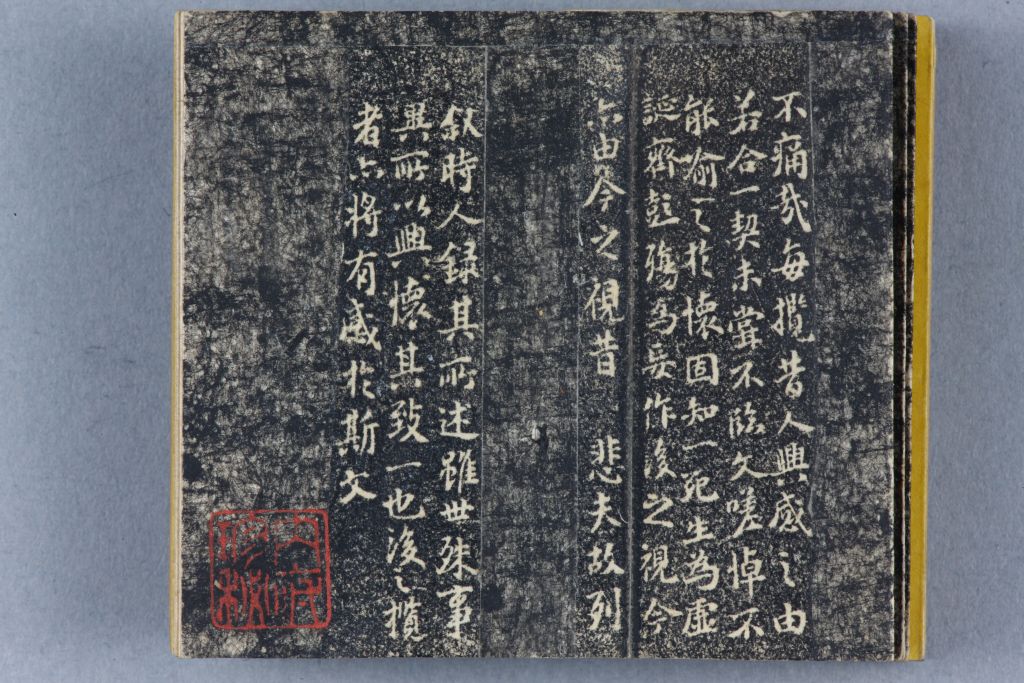 不痛哉每攬昔人興感之由
若合一契未嘗不臨文嗟悼不
能喻之於懷固知一死生為虛
誕齊彭殤為妄作後之視今
亦由今之視昔 悲夫故列
敘時人録其所述雖世殊事
異所以興懷其致一也後之攬
者亦將有感於斯文
內府